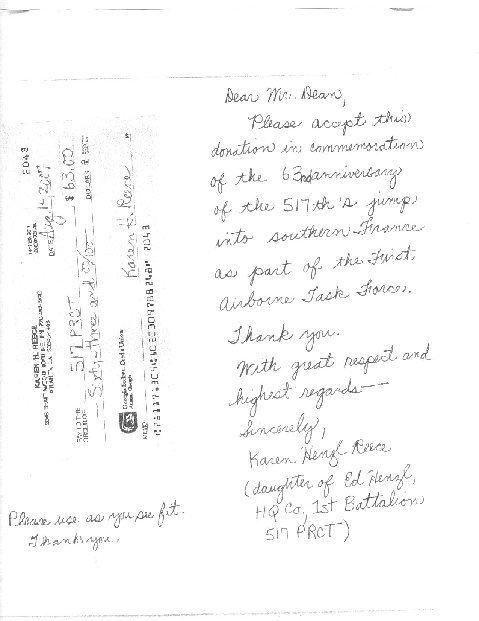 Dear Mr. Dean,
Please accept this
donation in commemoration
of the 63rd anniversary
of the 517th's jump
into southern France
as part of the First
Airborne Task Force.
Thank you.
With great respect and
highest regards--
Sincerely,
Karen Henzl Reece
(daughter of Ed Henzl,
HQ Co, 1st Battalion
517 PRCT)
KAREN H. REECE
2048
DATE Aug 14, 2007
PAY TO THE
ORDER OF 517 PRCT $ 63.00
Sixty-three and 00/100 DOLLARS
Georgia
MEMO Karen H. Reece
2048
Please use as you see fit.
Thank you.